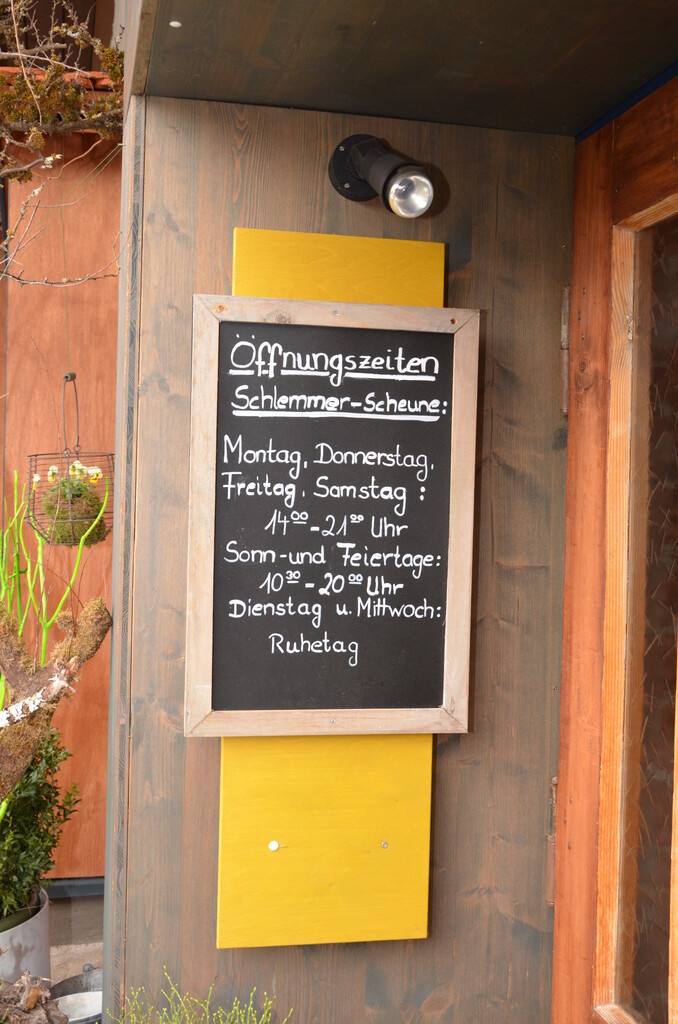 Öffnungszeiten
Schlemmer-Scheune:
Montag, Donnerstag,
Freitag, Samstag :
14⁰⁰-21⁰⁰ Uhr
Sonn-und Feiertage:
10³⁰-20⁰⁰ Uhr
Dienstag u. Mittwoch:
Ruhetag